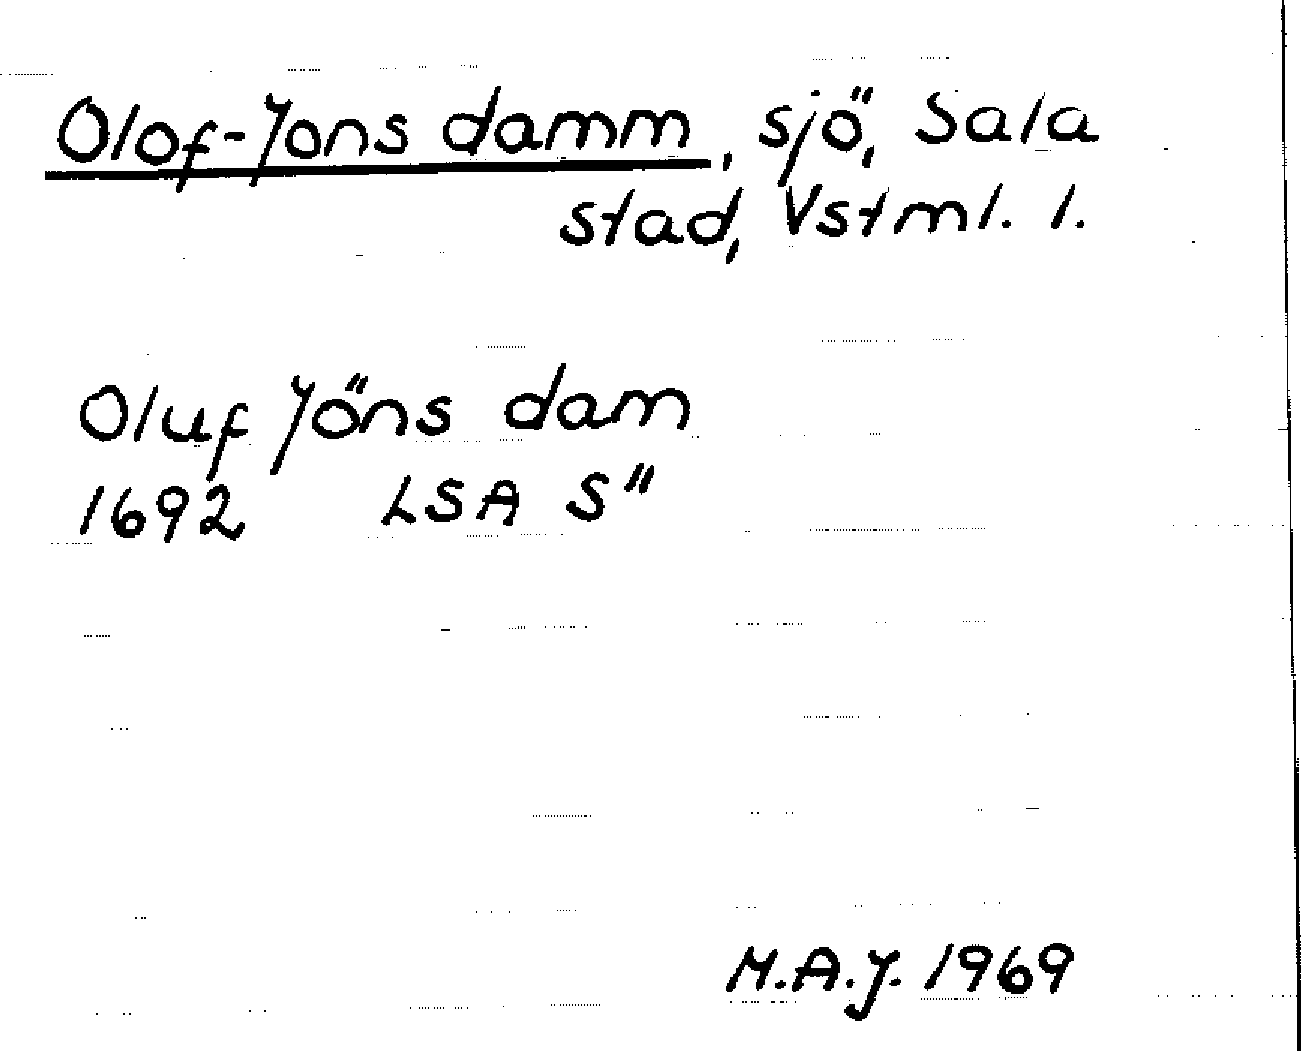 Olof-Jons damm, sjö, Sala
stad, Vstml. l.
Oluf Jöns dam
1692 LSA S"
M.A.J. 1969